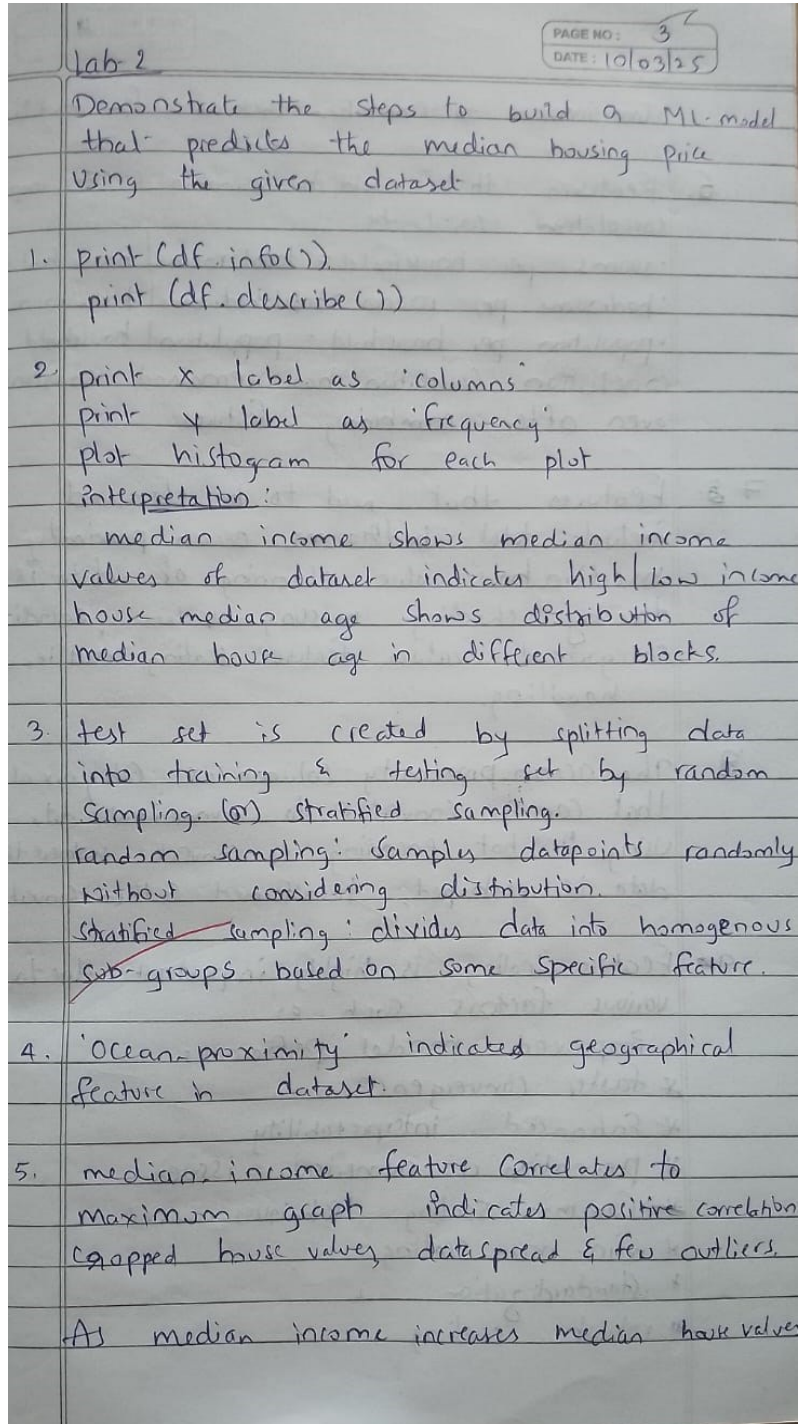 PAGE NO: 3
DATE: 10/03/25
Lab-2
Demonstrate the steps to build a ML-model
that predicts the median housing price
using the given dataset
1. print (df.info()).
print (df.describe())
2. print x label as 'columns'
print y label as 'frequency'
plot histogram for each plot
interpretation:
median income shows median income
values of dataset indicates high/low income
house median age shows distribution of
median house age in different blocks.
3. test set is created by splitting data
into training & testing set by random
sampling. (or) stratified sampling.
random sampling: samples datapoints randomly
without considering distribution.
stratified sampling: divides data into homogenous
sub-groups based on some specific feature.
4. 'Ocean-proximity' indicated geographical
feature in dataset.
5. median-income feature correlates to
maximum graph indicates positive correlation
capped house values, data spread & few outliers.
As median income increases median house values